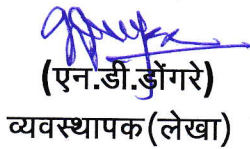 (एन.डी.डोंगरे)
व्यवस्थापक(लेखा)